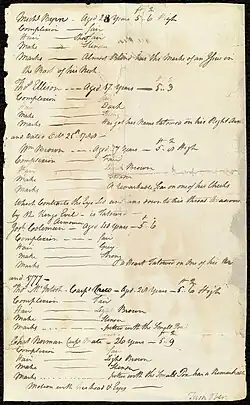 Mich.l Byrn — Aged 28 Years 5 - 6 High
Complexion — fair
Hair — Short fair
Make — Slender
Marks — Almost Blind has the Marks of an Issue in
the Back of his Neck
Tho.s Ellison — Aged 17 Years — 5 - 3
Complexion — Fair
Hair — Dark
Make
Marks — Has got his Name Tatowed on his Right Arm
and dated Oct. 25th 1788 —
W.m Brown — Aged 27 Years — 5 - 8 High
Complexion — Fair
Hair — Brown
Make
Marks — A remarkable Scar on one of his Cheeks
Which contracts the Eye Lid and runs down to his throat occasioned
by the Kings Evil — is Tatowed
Complexion — fair
Hair — Grey
Make — Strong
Marks — A Heart Tatowed on One of his Arms
and 5777 —
Complexion — Fair
Hair
Make — Slender
Marks — pitted with the Small Pox
Cha.s Norman Carp.s Mate — 26 Years — 5 - 9
Complexion — Fair
Hair — Light Brown
Make — Slender
Marks — pitted with the Small Pox, has a Remarkable
Motion with his head & Eyes